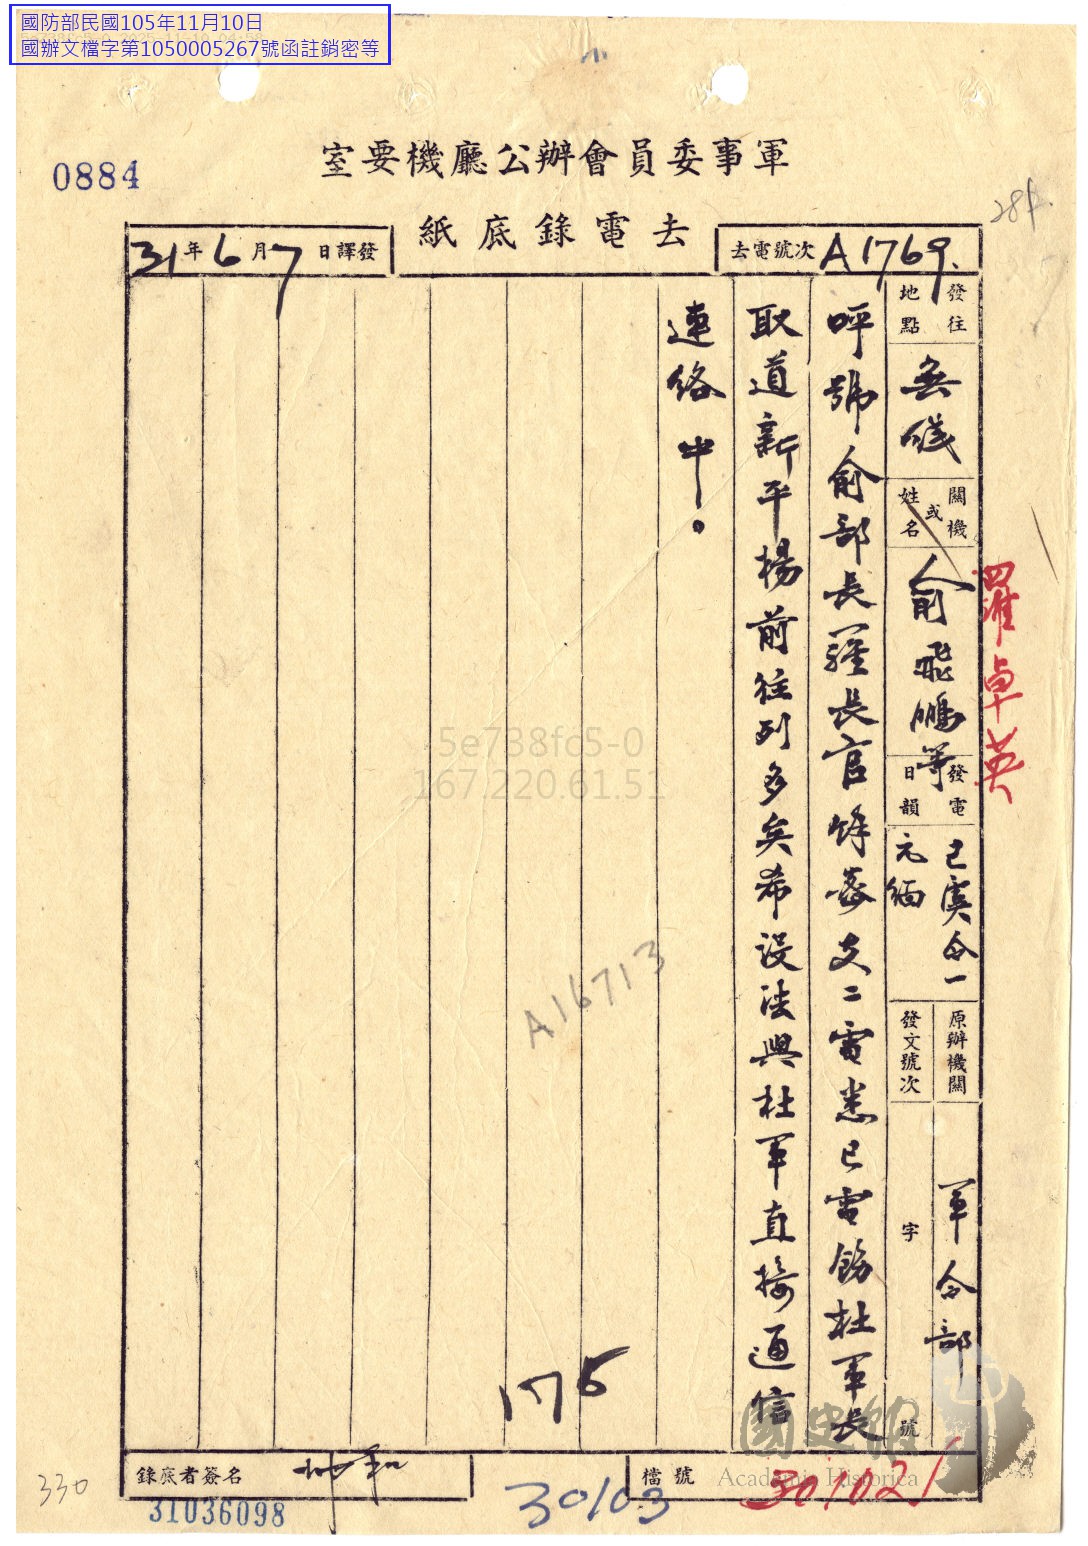 國防部民國105年11月10日
國辦文檔字第1050005267號函註銷密等
0884
軍事委員會辦公廳機要室
去電錄底紙
284
去電號次 A1769.
31年6月7日譯發
發往地點
無線
關機或姓名
俞飛鵬等
羅卓英
發電日韻
已虞令一
元緬
原辦機關
軍令部
發文號次
字
號
呼號俞部長羅長官 悉已電飭杜軍長
取道新平楊前往列多矣希設法與杜軍直接通信
連絡中。
5e738fc5-0
167.220.61.51
A16713
175
錄底者簽名
檔號
301021
30103
330
31036098
國史館
Academia Historica